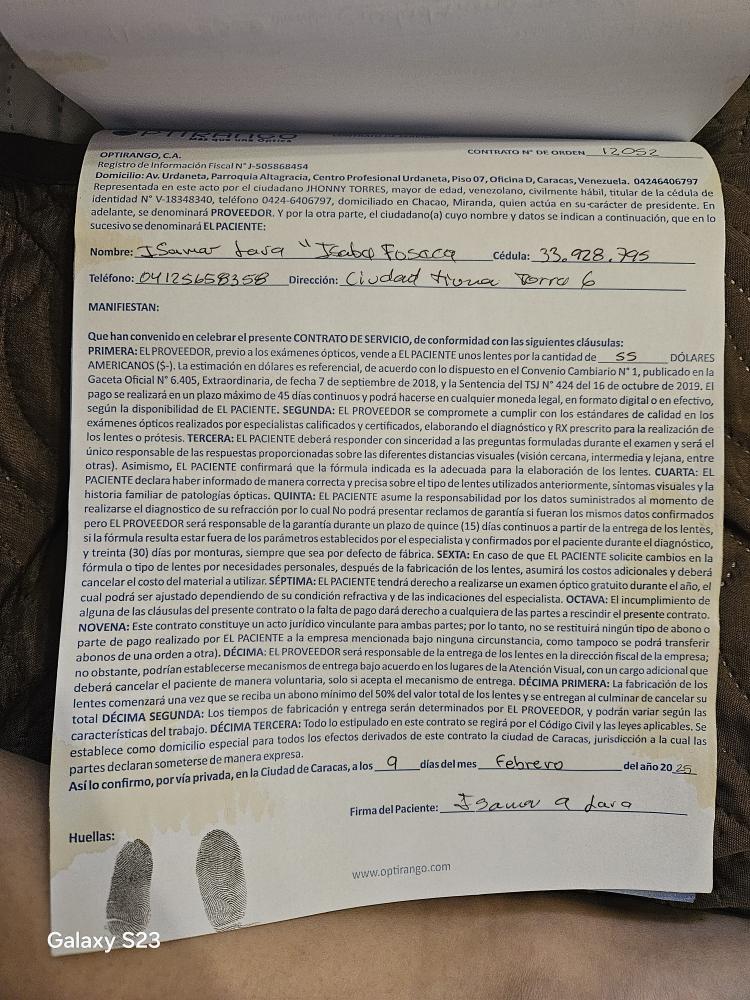 OPTIRANGO
Más que una Óptica
CONTRATO N° DE ORDEN 12052
OPTIRANGO, C.A.
Registro de Información Fiscal N° J-505868454
Domicilio: Av. Urdaneta, Parroquia Altagracia, Centro Profesional Urdaneta, Piso 07, Oficina D, Caracas, Venezuela. 04246406797
Representada en este acto por el ciudadano JHONNY TORRES, mayor de edad, venezolano, civilmente hábil, titular de la cédula de
identidad N° V-18348340, teléfono 0424-6406797, domiciliado en Chacao, Miranda, quien actúa en su carácter de presidente. En
adelante, se denominará PROVEEDOR. Y por la otra parte, el ciudadano(a) cuyo nombre y datos se indican a continuación, que en lo
sucesivo se denominará EL PACIENTE:
Nombre: Isamar Lara "Isaba Fosaca Cédula: 33.928.795
Teléfono: 04125658358 Dirección: Ciudad tiuna Torre 6
MANIFIESTAN:
Que han convenido en celebrar el presente CONTRATO DE SERVICIO, de conformidad con las siguientes cláusulas:
PRIMERA: EL PROVEEDOR, previo a los exámenes ópticos, vende a EL PACIENTE unos lentes por la cantidad de 55 DÓLARES
AMERICANOS ($-). La estimación en dólares es referencial, de acuerdo con lo dispuesto en el Convenio Cambiario N° 1, publicado en la
Gaceta Oficial N° 6.405, Extraordinaria, de fecha 7 de septiembre de 2018, y la Sentencia del TSJ N° 424 del 16 de octubre de 2019. El
pago se realizará en un plazo máximo de 45 días continuos y podrá hacerse en cualquier moneda legal, en formato digital o en efectivo,
según la disponibilidad de EL PACIENTE. SEGUNDA: EL PROVEEDOR se compromete a cumplir con los estándares de calidad en los
exámenes ópticos realizados por especialistas calificados y certificados, elaborando el diagnóstico y RX prescrito para la realización de
los lentes o prótesis. TERCERA: EL PACIENTE deberá responder con sinceridad a las preguntas formuladas durante el examen y será el
único responsable de las respuestas proporcionadas sobre las diferentes distancias visuales (visión cercana, intermedia y lejana, entre
otras). Asimismo, EL PACIENTE confirmará que la fórmula indicada es la adecuada para la elaboración de los lentes. CUARTA: EL
PACIENTE declara haber informado de manera correcta y precisa sobre el tipo de lentes utilizados anteriormente, síntomas visuales y la
historia familiar de patologías ópticas. QUINTA: EL PACIENTE asume la responsabilidad por los datos suministrados al momento de
realizarse el diagnostico de su refracción por lo cual No podrá presentar reclamos de garantía si fueran los mismos datos confirmados
pero EL PROVEEDOR será responsable de la garantía durante un plazo de quince (15) días continuos a partir de la entrega de los lentes,
si la fórmula resulta estar fuera de los parámetros establecidos por el especialista y confirmados por el paciente durante el diagnóstico,
y treinta (30) días por monturas, siempre que sea por defecto de fábrica. SEXTA: En caso de que EL PACIENTE solicite cambios en la
fórmula o tipo de lentes por necesidades personales, después de la fabricación de los lentes, asumirá los costos adicionales y deberá
cancelar el costo del material a utilizar. SÉPTIMA: EL PACIENTE tendrá derecho a realizarse un examen óptico gratuito durante el año, el
cual podrá ser ajustado dependiendo de su condición refractiva y de las indicaciones del especialista. OCTAVA: El incumplimiento de
alguna de las cláusulas del presente contrato o la falta de pago dará derecho a cualquiera de las partes a rescindir el presente contrato.
NOVENA: Este contrato constituye un acto jurídico vinculante para ambas partes; por lo tanto, no se restituirá ningún tipo de abono o
parte de pago realizado por EL PACIENTE a la empresa mencionada bajo ninguna circunstancia, como tampoco se podrá transferir
abonos de una orden a otra). DÉCIMA: EL PROVEEDOR será responsable de la entrega de los lentes en la dirección fiscal de la empresa;
no obstante, podrían establecerse mecanismos de entrega bajo acuerdo en los lugares de la Atención Visual, con un cargo adicional que
deberá cancelar el paciente de manera voluntaria, solo si acepta el mecanismo de entrega. DÉCIMA PRIMERA: La fabricación de los
lentes comenzará una vez que se reciba un abono mínimo del 50% del valor total de los lentes y se entregan al culminar de cancelar su
total DÉCIMA SEGUNDA: Los tiempos de fabricación y entrega serán determinados por EL PROVEEDOR, y podrán variar según las
características del trabajo. DÉCIMA TERCERA: Todo lo estipulado en este contrato se regirá por el Código Civil y las leyes aplicables. Se
establece como domicilio especial para todos los efectos derivados de este contrato la ciudad de Caracas, jurisdicción a la cual las
partes declaran someterse de manera expresa.
Así lo confirmo, por vía privada, en la Ciudad de Caracas, a los 9 días del mes Febrero del año 2025
Firma del Paciente: Isamar a Lara
Huellas:
www.optirango.com
Galaxy S23